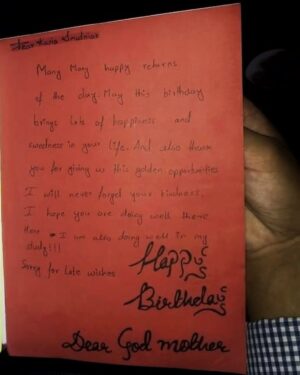 Dear Maria
Many Many happy returns
of the day. May this birthday
brings lots of happiness and
sweetness in your life. And also thank
you for giving us this golden opportunities
I will never forget your kindness.
I hope you are doing well there
Here I am also doing well in my
study!!!
Sorry for late wishes
Happy
Birthday
Dear God mother